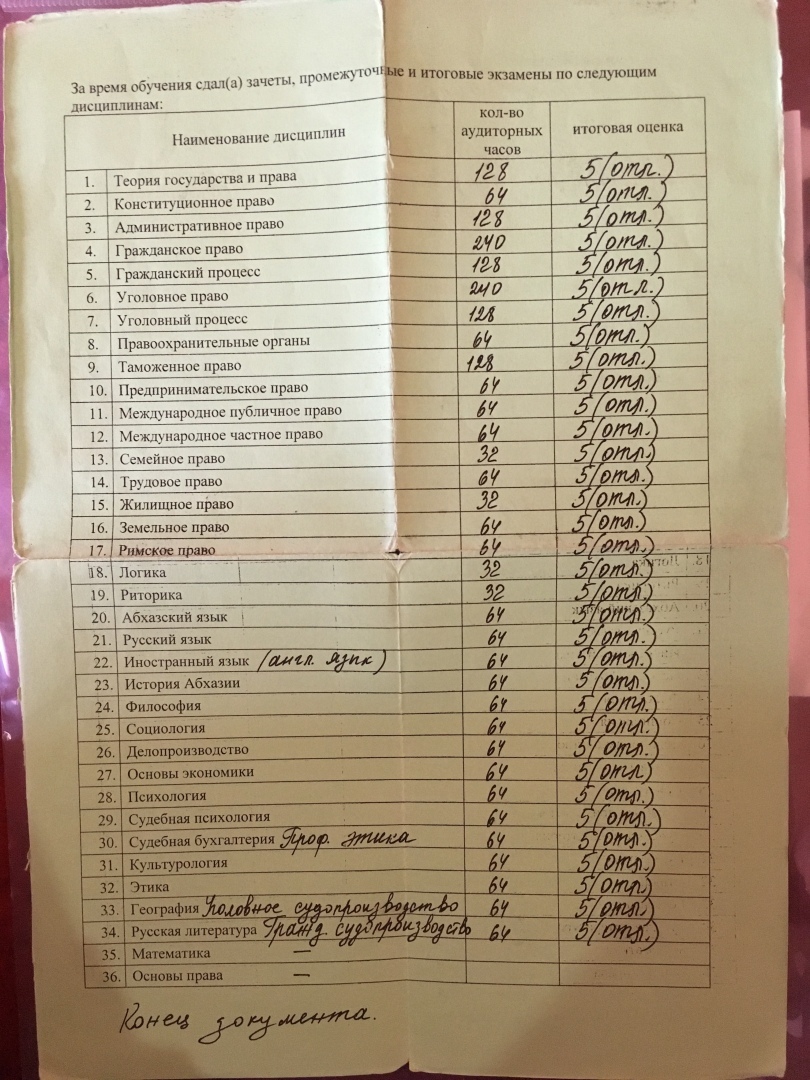 За время обучения сдал(а) зачеты, промежуточные и итоговые экзамены по следующим
дисциплинам:
Наименование дисциплин кол-во аудиторных часов итоговая оценка
1. Теория государства и права 128 5 (отл.)
2. Конституционное право 64 5 (отл.)
3. Административное право 128 5 (отл.)
4. Гражданское право 240 5 (отл.)
5. Гражданский процесс 128 5 (отл.)
6. Уголовное право 240 5 (отл.)
7. Уголовный процесс 128 5 (отл.)
8. Правоохранительные органы 64 5 (отл.)
9. Таможенное право 128 5 (отл.)
10. Предпринимательское право 64 5 (отл.)
11. Международное публичное право 64 5 (отл.)
12. Международное частное право 64 5 (отл.)
13. Семейное право 32 5 (отл.)
14. Трудовое право 64 5 (отл.)
15. Жилищное право 32 5 (отл.)
16. Земельное право 64 5 (отл.)
17. Римское право 64 5 (отл.)
18. Логика 32 5 (отл.)
19. Риторика 32 5 (отл.)
20. Абхазский язык 64 5 (отл.)
21. Русский язык 64 5 (отл.)
22. Иностранный язык (англ. язык) 64 5 (отл.)
23. История Абхазии 64 5 (отл.)
24. Философия 64 5 (отл.)
25. Социология 64 5 (отл.)
26. Делопроизводство 64 5 (отл.)
27. Основы экономики 64 5 (отл)
28. Психология 64 5 (отл.)
29. Судебная психология 64 5 (отл.)
30. Судебная бухгалтерия Проф. этика 64 5 (отл.)
31. Культурология 64 5 (отл.)
32. Этика 64 5 (отл)
33. География Уголовное судопроизводство 64 5 (отл.)
34. Русская литература Гражд. судопроизводство 64 5 (отл.)
35. Математика —
36. Основы права —
Конец документа.